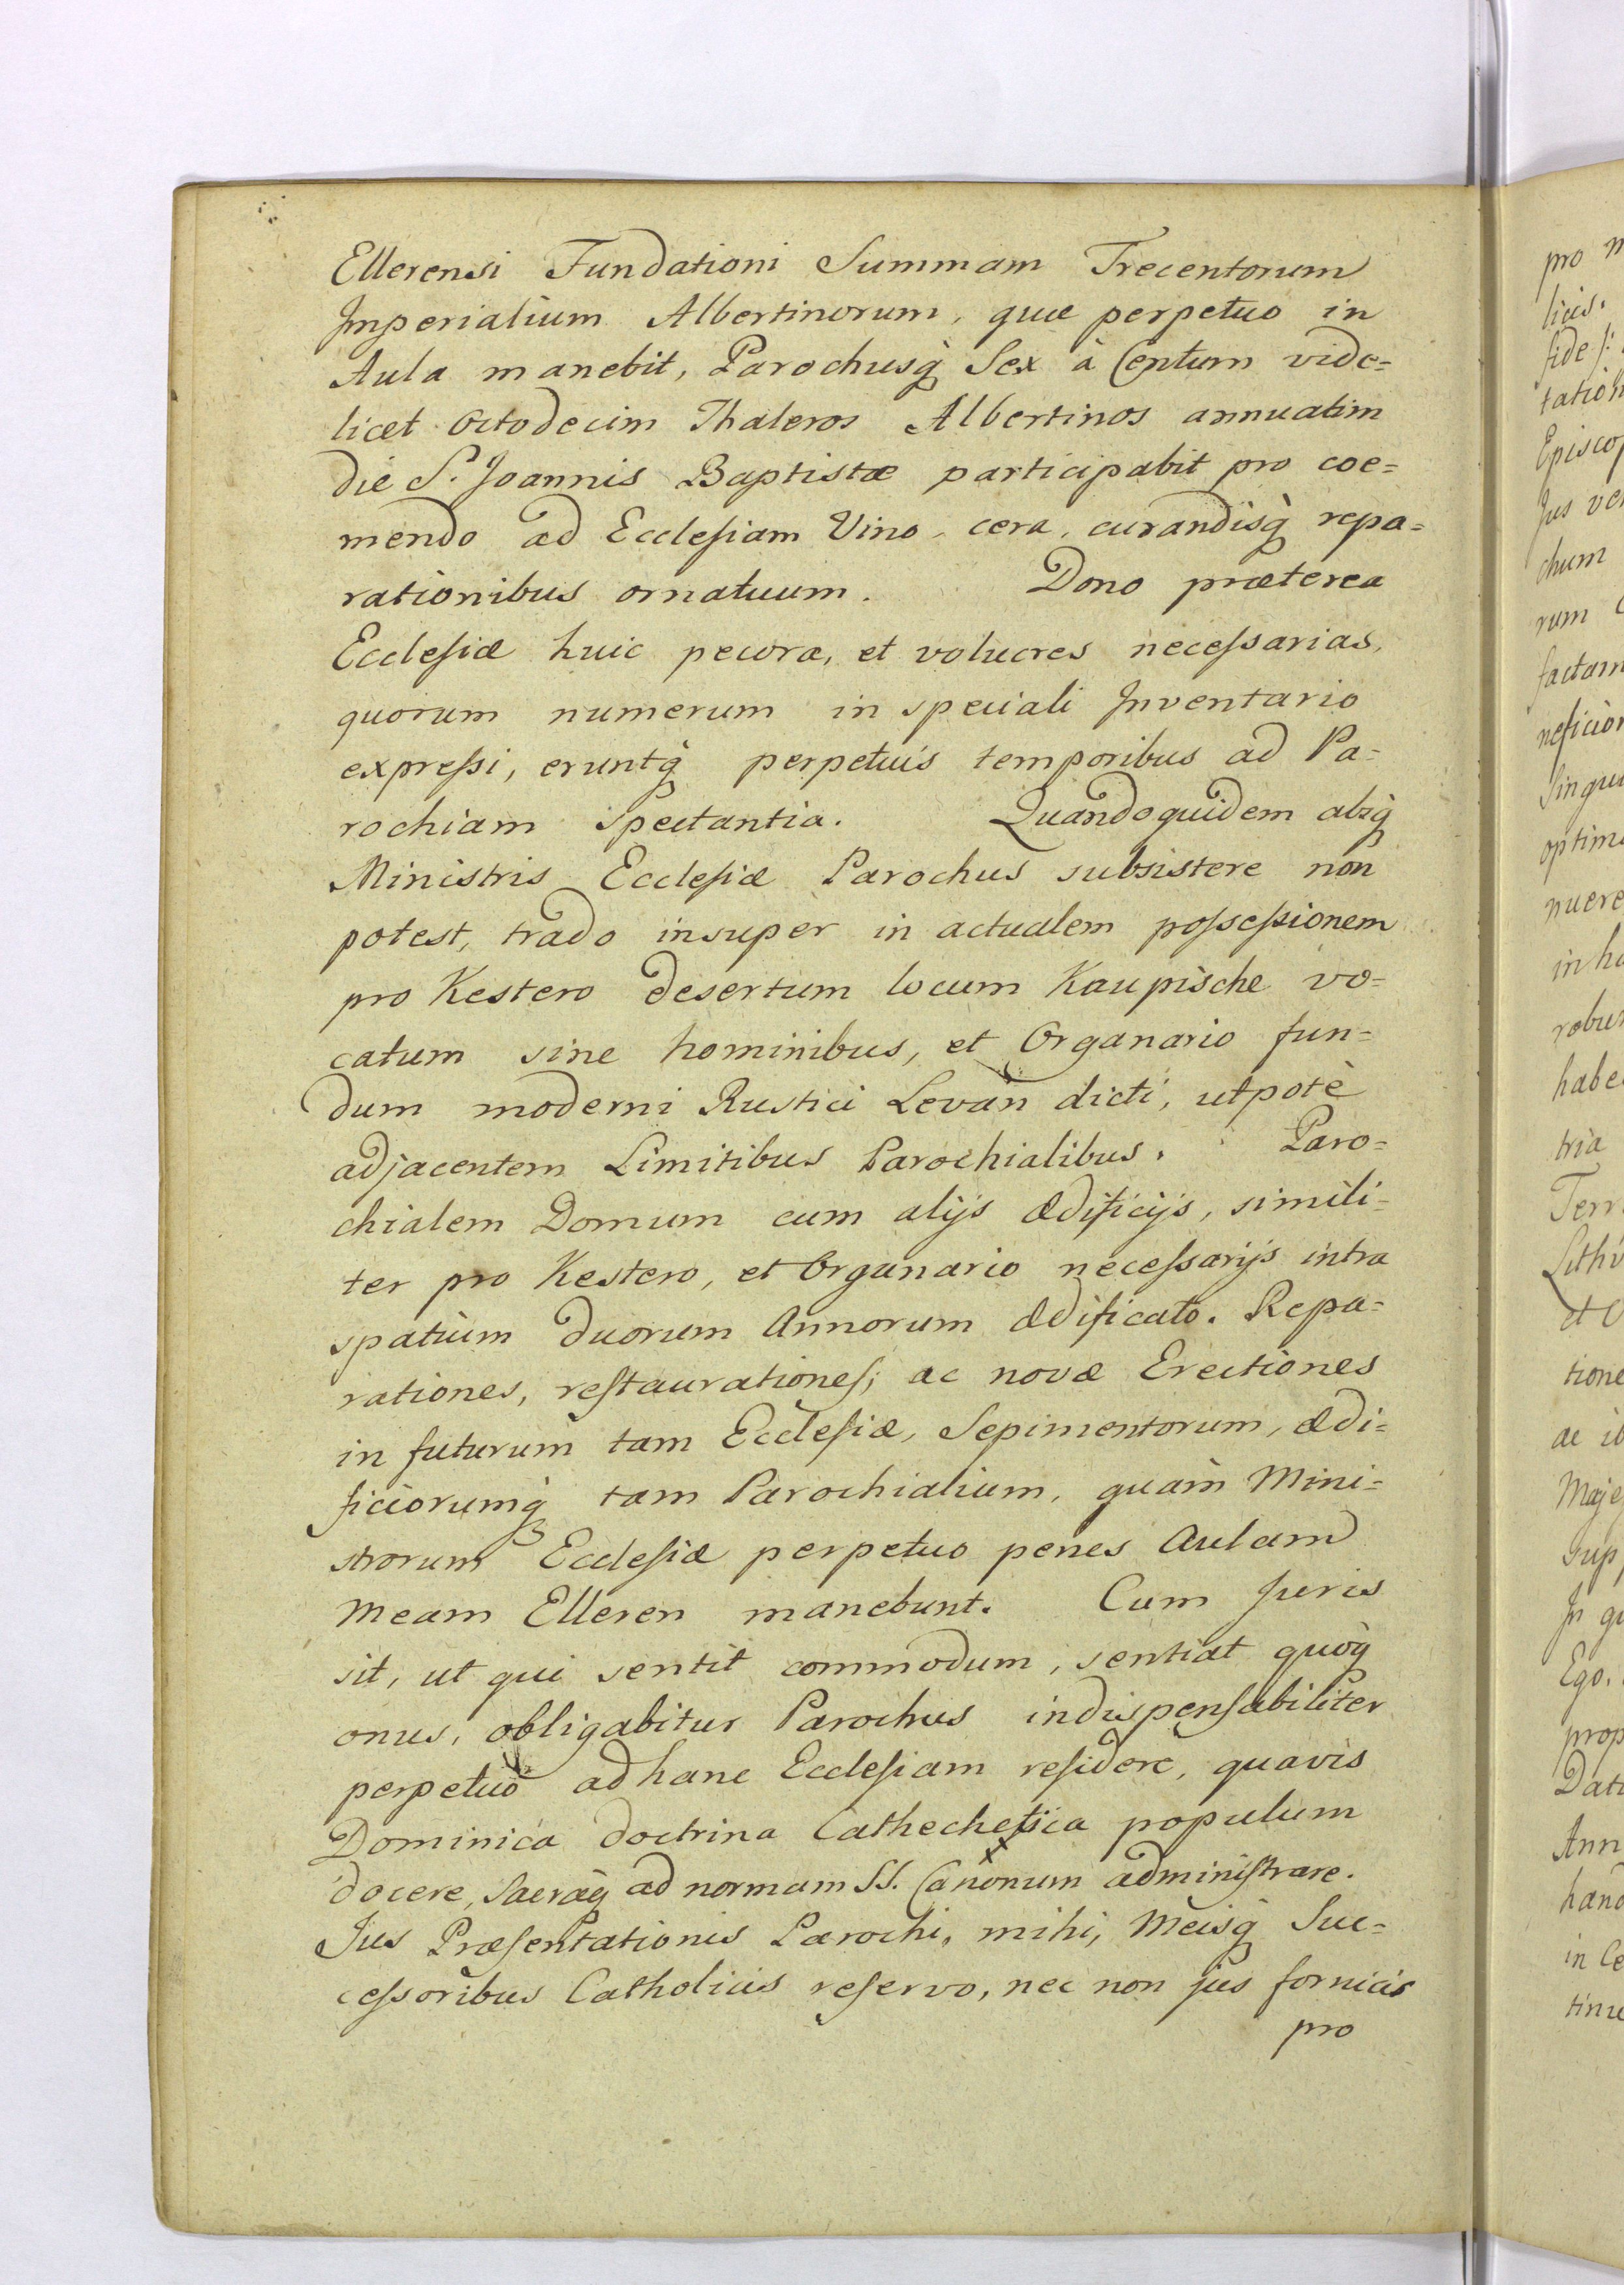 Ellerensi Fundationi Summam Trecentorum
Imperialium Albertinorum, quæ perpetuo in
Aula manebit, Parochusq̀ Sex à Centum vide=
licet Octodecim Thaleros Albertinos annuatim
die S. Joannis Baptistæ participabit pro coe=
mendo ad Ecclesiam Vino, cera, curandisq̀ repa=
rationibus ornatuum. Dono præterea
Ecclesiæ huic pecora, et volucres necessarias,
quorum numerum in speciali Inventario
expressi, eruntq̀ perpetuis temporibus ad Pa=
rochiam Spectantia. Quandoquidem absq̀
Ministris Ecclesiæ Parochus subsistere non
potest, trado insuper in actualem possessionem
pro Kestero desertum locum Kaupische vo=
catum sine hominibus, et Organario fun=
dum moderni Rustici Levan dicti, utpotè
adjacentem Limitibus Parochialibus. Paro=
chialem Domum cum alijs Ædificijs, simili=
ter pro Kestero, et Organario necessarijs intra
spatium duorum Annorum Ædificato. Repa=
rationes, restaurationes, ac novæ Erectiones
in futurum tam Ecclesiæ, Sepimentorum, ædi=
ficiorumq̀ tam Parochialium, quàm Mini=
strorum Ecclesiæ perpetuo penes Aulam
meam Elleren manebunt. Cum Juris
sit, ut qui sentit commodum, sentiat quoq̀
onus, obligabitur Parochus indispensabiliter
perpetuò ad hanc Ecclesiam residere, quavis
Dominica doctrina Cathechetica populum
docere, Sacraq̀ ad normam SS. Canonum administrare.
Jus Præsentationis Parochi, mihi, Meisq̀ Suc=
cessoribus Catholicis reservo, nec non jus fornicis
pro
pro
licis.
fide /:
Episcop
Jus
chum
rum
factam
Singu
optim
nuere
in
habe
tria
Terr
Lithv
et
tione
ac
Maje
sup
In
Ego.
prop
Dat
Ann
hand
in